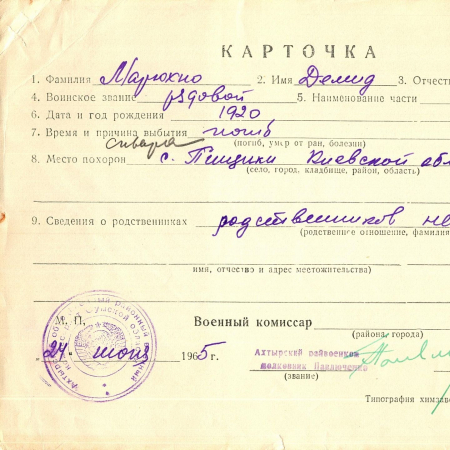 КАРТОЧКА
1. Фамилия Марюхно 2. Имя Демид 3. Отчест
4. Воинское звание рядовой 5. Наименование части
6. Дата и год рождения 1920
7. Время и причина выбытия погиб
(погиб, умер от ран, болезни)
8. Место похорон с. Пищики Киевской обл
(село, город, кладбище, район, область)
9. Сведения о родственниках родственников не
(родственное отношение, фамилия
имя, отчество и адрес местожительства)
М. П. Военный комиссар
(района, города)
24 июня 1965 г.
Ахтырский райвоенком
полковник
(звание)
Типография химзаво